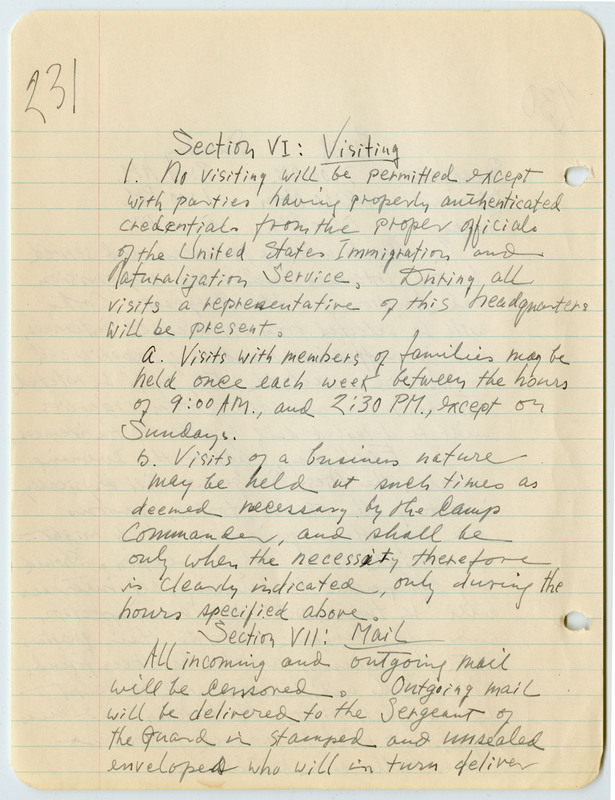 231
Section VI: Visiting
1. No visiting will be permitted except
with parties having properly authenticated
credentials from the proper officials
of the United States Immigration and
Naturalization Service. During all
visits a representative of this headquarters
will be present.
a. Visits with members of families may be
held once each week between the hours
of 9:00 AM., and 2:30 PM., except on
Sundays.
b. Visits of a business nature
may be held at such times as
deemed necessary by the Camp
Commander, and shall be
only when the necessity therefore
is clearly indicated, only during the
hours specified above.
Section VII: Mail
All incoming and outgoing mail
will be censored. Outgoing mail
will be delivered to the Sergeant of
the Guard in stamped and unsealed
envelopes who will in turn deliver